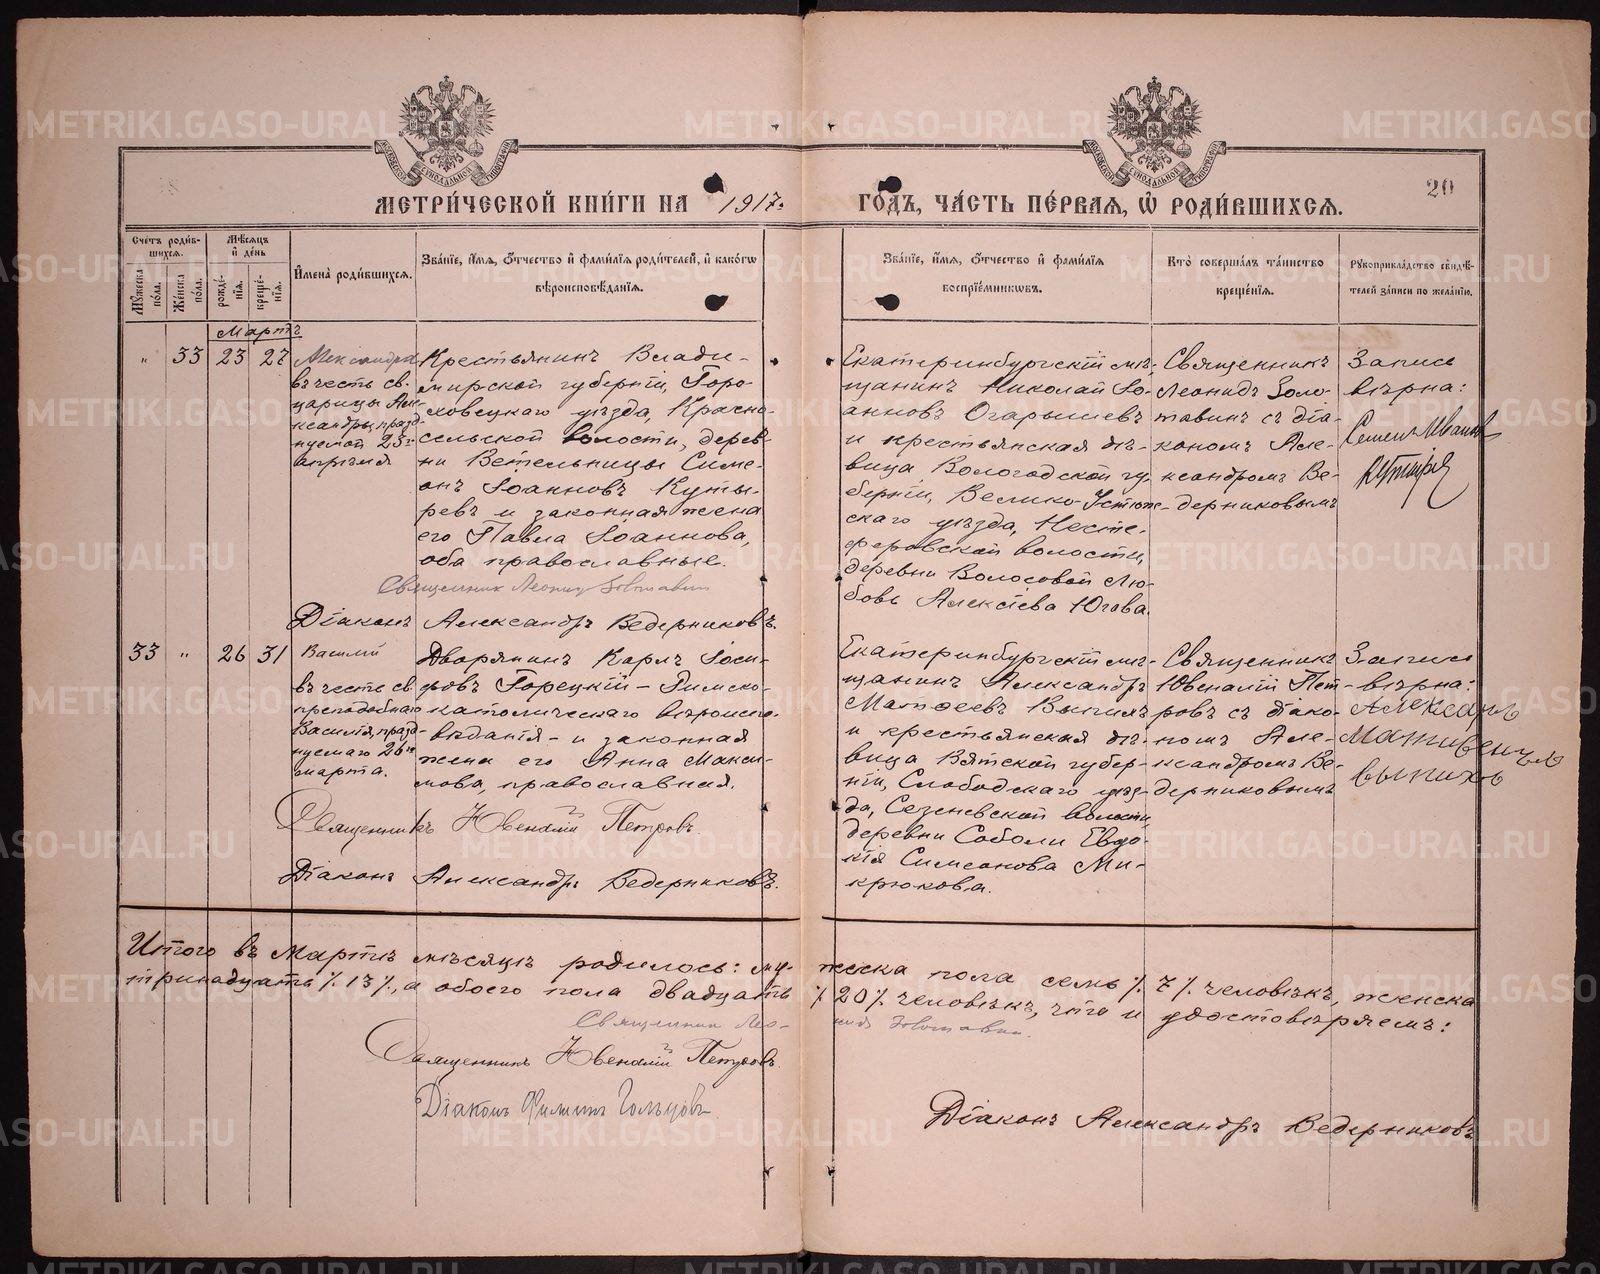 МЕТРИЧЕСКОЙ КНИГИ НА 1917.
ГОДЪ, ЧАСТЬ ПЕРВАЯ, Ѡ РОДИВШИХСЯ.
20
Счетъ родив-
шихся.
Мужеска
пола.
Женска
пола.
Мѣсяцъ
и день
рожде-
нія.
креще-
нія.
Имена родившихся.
Званіе, имя, отчество и фамилія родителей, и какогѡ
вѣроисповѣданія.
Званіе, имя, отчество и фамилія
воспріемникѡвъ.
Кто совершалъ таинство
крещенія.
Рукоприкладство свидѣ-
телей записи по желанію.
Мартъ
" 33 23 27
Александра
въ честь св.
царицы Але-
ксандры, празд-
нуемой 23го
апрѣля
Крестьянинъ Влади-
мирской губерніи, Горо-
ховецкаго уѣзда, Красно-
сельской волости, дерев-
ни Ветельницы Симе-
онъ Іоанновъ Куты-
ревъ и законная жена
его Павла Іоаннова,
оба православные.
Священникъ Леонидъ Золотавинъ
Діаконъ Александръ Ведерниковъ.
Екатеринбургскій мѣ-
щанинъ Николай Іо-
анновъ Огарышевъ
и крестьянская дѣ-
вица Вологодской гу-
берніи, Велико-Устюж-
скаго уѣзда, Несте-
феровской волости,
деревни Волосовой Лю-
бовь Алексіева Югова.
Священникъ
Леонидъ Золо-
тавинъ съ діа-
кономъ Але-
ксандромъ Ве-
дерниковымъ
Запись
вѣрна:
Семенъ Иванов
33 " 26 31
Василій
въ честь св
преподобнаго
Василія, празд-
нуемаго 26го
марта.
Дворянинъ Карлъ Іоси-
фовъ Горецкій – Римско-
католическаго вѣроиспо-
вѣданія – и законная
жена его Анна Макси-
мова, православная.
Священникъ Ювеналій Петровъ.
Діаконъ Александръ Ведерниковъ.
Екатеринбургскій мѣ-
щанинъ Александръ
Матѳеевъ Выпихъ
и крестьянская дѣ-
вица Вятской губер-
ніи, Слободскаго уѣз-
да, Сезеневской волости
деревни Соболи Евдо-
кія Симеонова Ми-
крюкова.
Священникъ
Ювеналій Пет-
ровъ съ діако-
номъ Але-
ксандромъ Ве-
дерниковымъ
Запись
вѣрна:
Александъ
Матвевичъ
Итого въ Мартѣ мѣсяцѣ родилось: му-
жеска пола семь % 7 %. человѣкъ, женска
тринадцать % 13 %, а обоего пола двадцать
% 20 % человѣкъ, что и удостовѣряемъ:
Священникъ Лео-
нидъ Золотавинъ
Священникъ Ювеналій Петровъ.
Діаконъ Филиппъ Гольцовъ
Діаконъ Александръ Ведерниковъ
METRIKI.GASO-URAL.RU